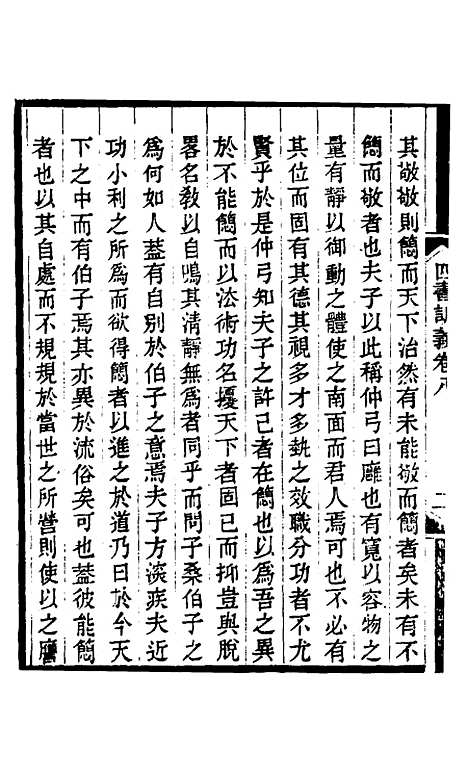 四書訓義卷八
二
其敬敬則簡而天下治然有未能敬而簡者矣未有不
簡而敬者也夫子以此稱仲弓曰雍也有寬以容物之
量有靜以御動之體使之南面而君人焉可也不必有
其位而固有其德其視多才多埶之效職分功者不尤
賢乎於是仲弓知夫子之許己者在簡也以為吾之異
於不能簡而以法術功名擾天下者固已而抑豈與脫
畧名敎以自鳴其清靜無為者同乎而問子桑伯子之
為何如人葢有自别於伯子之意焉夫子方深疾夫近
功小利之所為而欲得簡者以進之於道乃曰於今天
下之中而有伯子焉其亦異於流俗矣可也葢彼能簡
者也以其自處而不規規於當世之所營則使以之